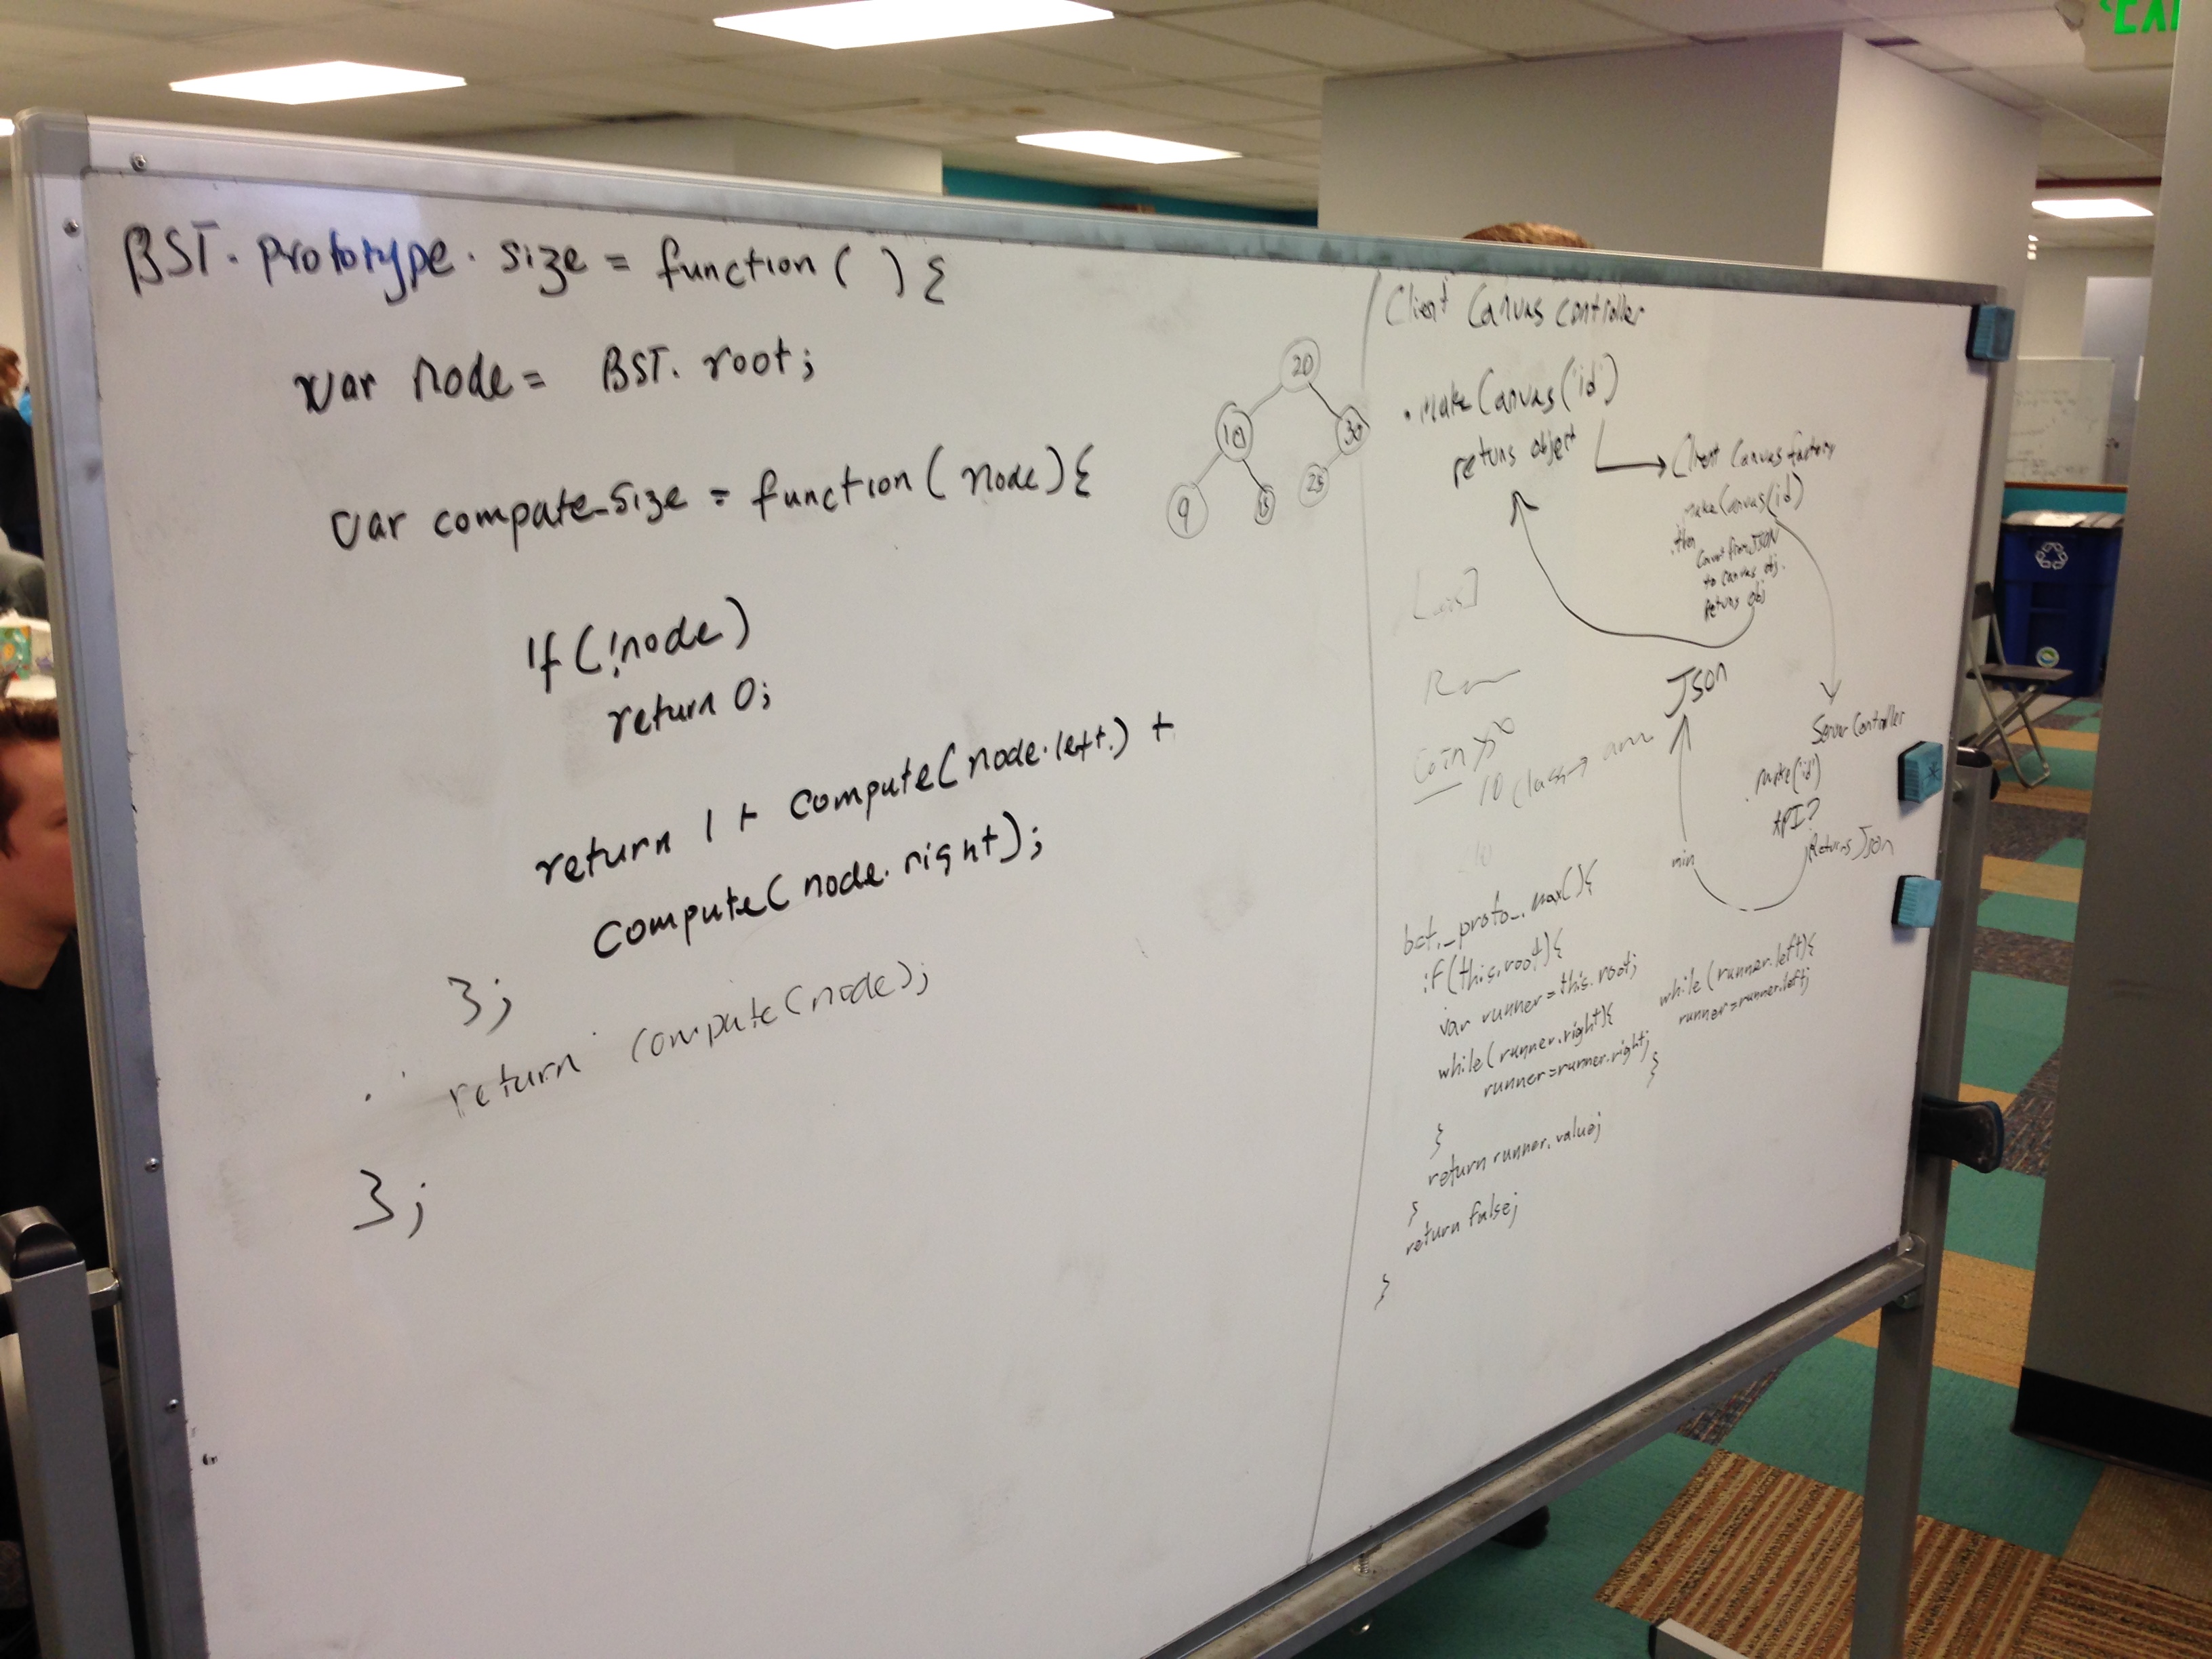 BST.prototype.size = function( ) {
var node = BST.root;
var compute_size = function(node){
if(!node)
return 0;
return 1 + compute(node.left) +
compute(node.right);
};
return compute(node);
};
20
10
30
9
15
25
Client Canvas Controller
.makeCanvas('id')
returns object
Client Canvas factory
makeCanvas(id)
.then
from JSON
to canvas obj.
returns obj
Json
Server Controller
.make('id')
API?
Returns Json
min
Coin
10 class→
10
bct._proto_.max(){
if(this.root){
var runner=this.root;
while(runner.right){
runner=runner.right;
}
return runner.value;
}
return false;
}
while(runner.left){
runner=runner.left;
}
EXI